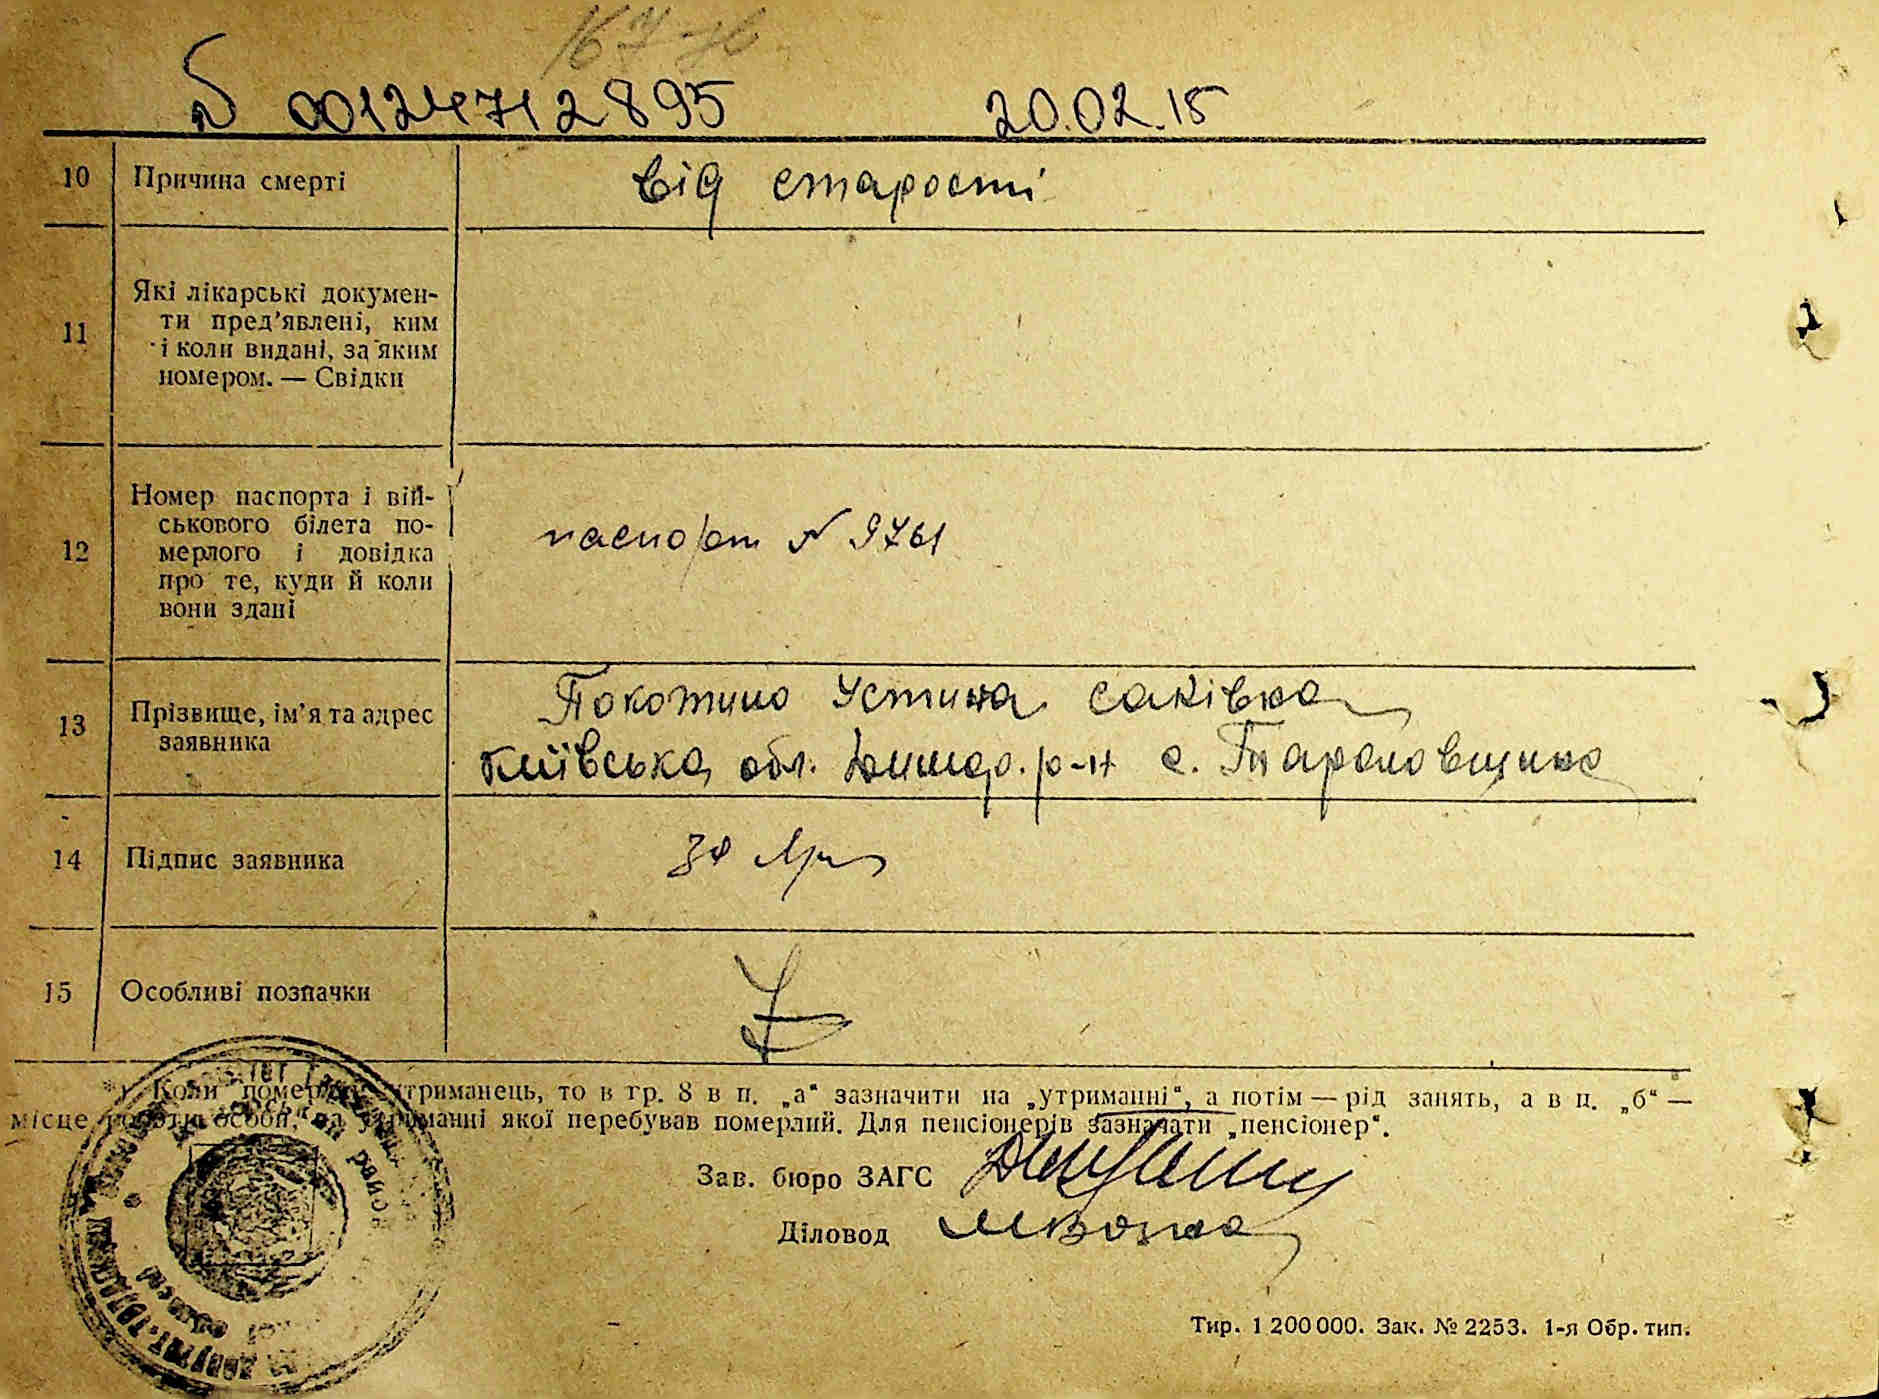 № 00124712895 20.02.15
10 Причина смерті від старости
11 Які лікарські докумен-
ти пред'явлені, ким
і коли видані, за яким
номером. — Свідки
12 Номер паспорта і вій-
ськового білета по-
мерлого і довідка
про те, куди й коли
вони здані
паспорт № 9761
13 Прізвище, ім'я та адрес
заявника
Покотило Устина Саківна
Київська обл. р-н с.
14 Підпис заявника
15 Особливі позначки
Коли утриманець, то в гр. 8 в п. „а“ зазначити на „утриманні“, а потім — рід занять, а в п. „б“ —
місце роботи особи, на утриманні якої перебував померлий. Для пенсіонерів зазначати „пенсіонер“.
Зав. бюро ЗАГС
Діловод
Тир. 1 200 000. Зак. № 2253. 1-я Обр. тип.